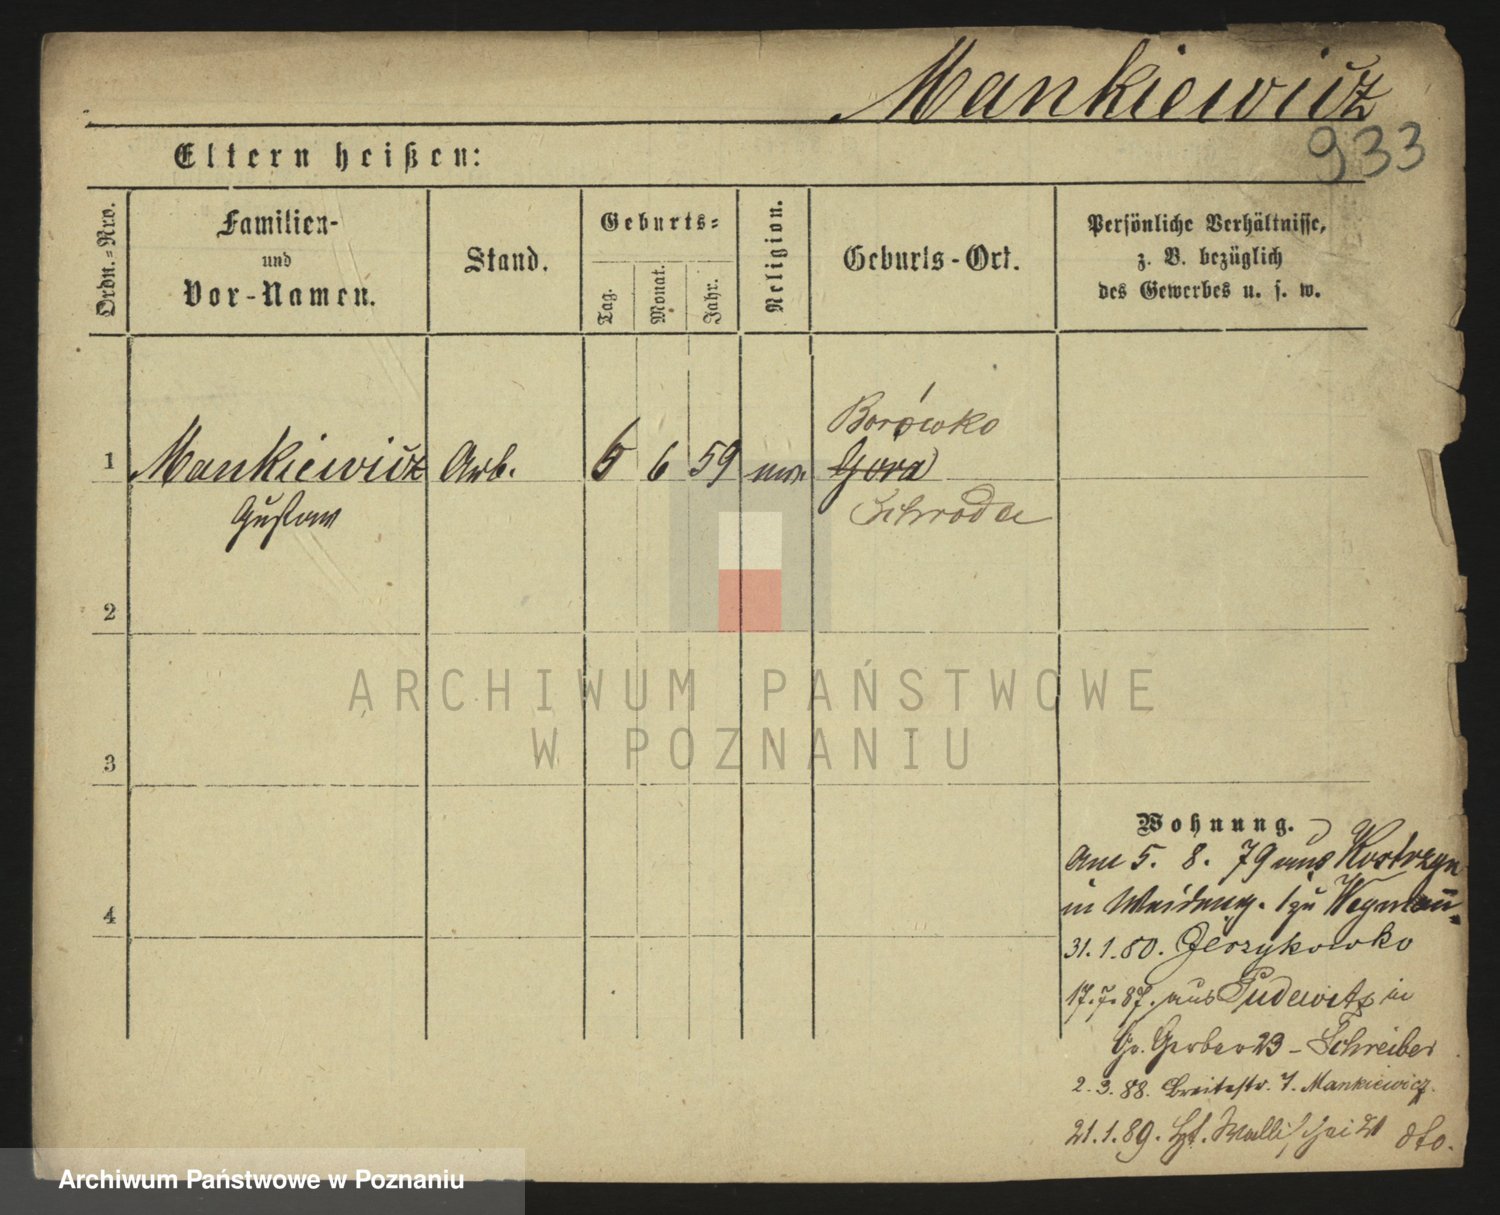 Mankiewicz
933
Eltern heißen:
Ordn.-Nro.
Familien-
und
Vor-Namen.
Stand.
Geburts-
Tag.
Monat.
Jahr.
Religion.
Geburts-Ort.
Persönliche Verhältnisse,
z. B. bezüglich
des Gewerbes u. s. w.
Borówko
1 Mankiewicz Arb. 5 6 59 Gora
Gustaw Schroda
2
ARCHIWUM PAŃSTWOWE
W POZNANIU
3
Wohnung.
am 5. 8. 79 aus Kostrzyn
4
in zu Wegman
31. 1. 80. Jerzykowko
17. 7. 87. aus Pudewitz in
Gr. Gerber 23 – Schreiber
2. 3. 88. Breitestr. 7. Mankiewicz.
21. 1. 89. Wallischei 21 dto.
Archiwum Państwowe w Poznaniu